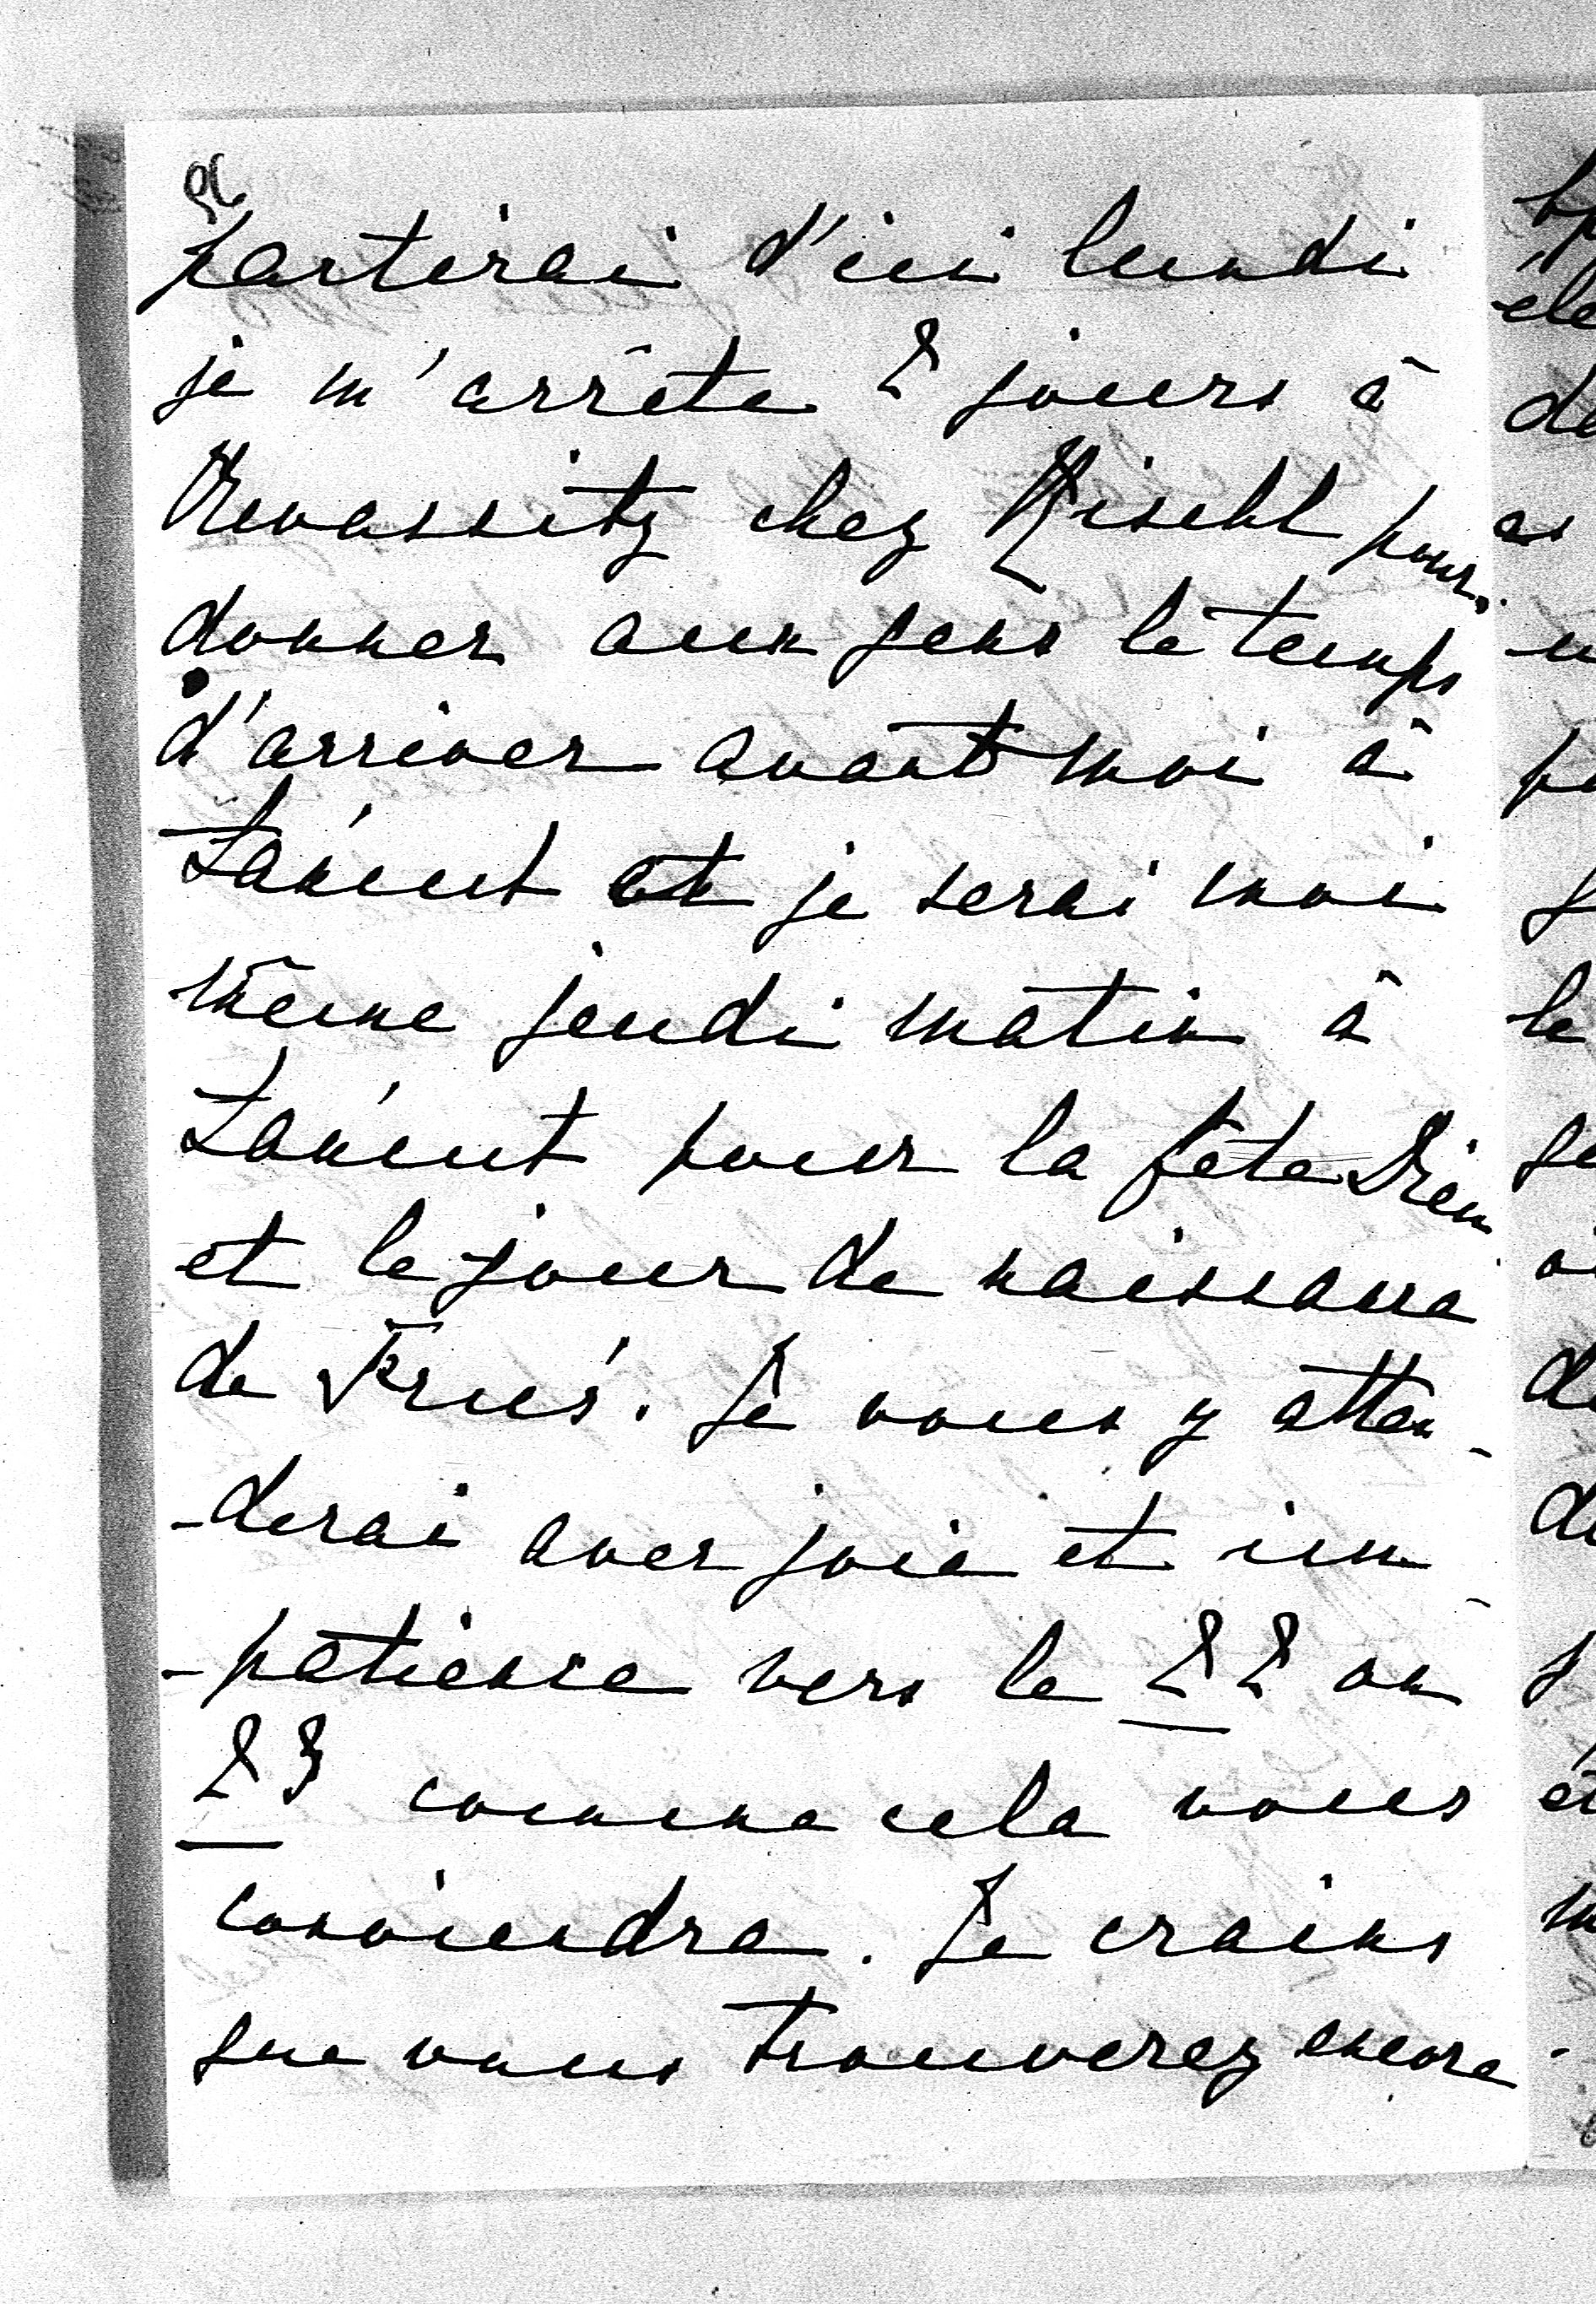 partirai d'ici lundi
je m'arrête 2 jours à
chez pour
donner aux gens le temps
d'arriver avant moi à
Lancut et je serai moi
même jeudi matin à
Lancut pour la fête Dieu
et le jour de naissance
de . Je vous y atten
-derai avec joie et im
-patience vers le 22 ou
23 comme cela vous
conviendra. Je crains
que vous trouverez encore